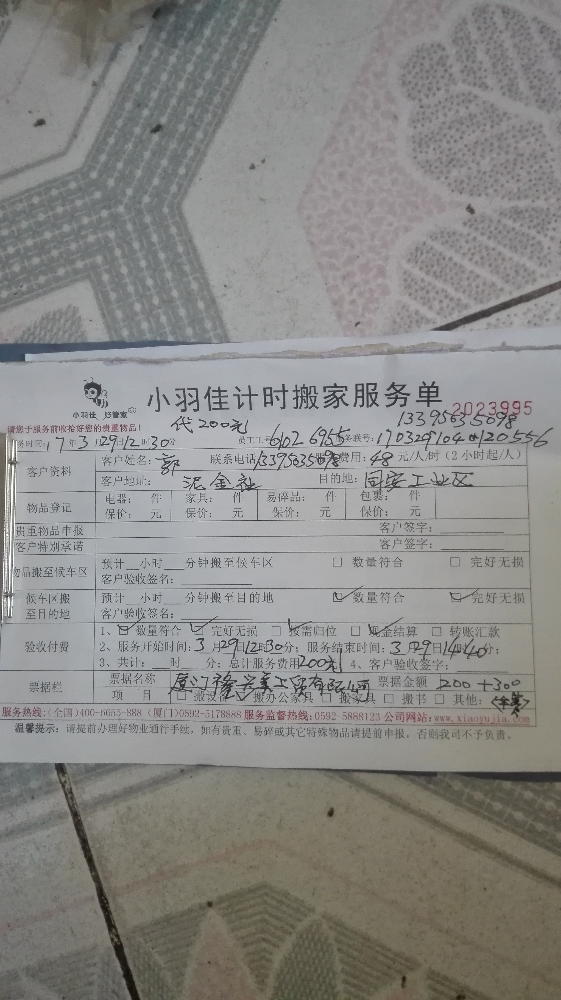 小羽佳 好管家
小羽佳计时搬家服务单
2023995
请您于服务前收拾好您的贵重物品!
代200元
13395635698
务时间: 17年3月29日12时30分 员工工号: 6102 6955 务联号: 170329104
客户资料 客户姓名: 郭 联系电话 13395635698 费用: 48元/人/时 (2小时起/人)
客户地址: 泥金社 目的地: 同安工业区
物品登记 电器: 件 家具: 件 易碎品: 件 包裹: 件
保价: 元 保价: 元 保价: 元 保价: 元
贵重物品申报 客户签字:
客户特别承诺 客户签字:
物品搬至候车区 预计 小时 分钟搬至候车区 □ 数量符合 □ 完好无损
客户验收签名:
候车区搬至目的地 预计 小时 分钟搬至目的地 ☑ 数量符合 ☑ 完好无损
客户验收签名:
验收付费 1、☑ 数量符合 ☑ 完好无损 ☑ 按需归位 ☑ 现金结算 □ 转账汇款
2、服务开始时间: 3月29日12时30分; 服务结束时间: 3月29日14时40分;
3、共计: 时 分; 总计服务费用 200元 4、客户验收签字:
票据栏 票据名称 厦门 兴美工贸有限公司 票据金额 200+300
项 目 □ 搬设备 ☑ 搬办公家具 □ 搬家具 □ 搬书 □ 其他:
服务热线: (全国)400-6055-888 (厦门)0592-5178888 服务监督热线: 0592-5888123 公司网站: www.xiaoyujia.com
温馨提示: 请提前办理好物业通行手续, 如有贵重、易碎或其它特殊物品请提前申报, 否则我司不予负责。